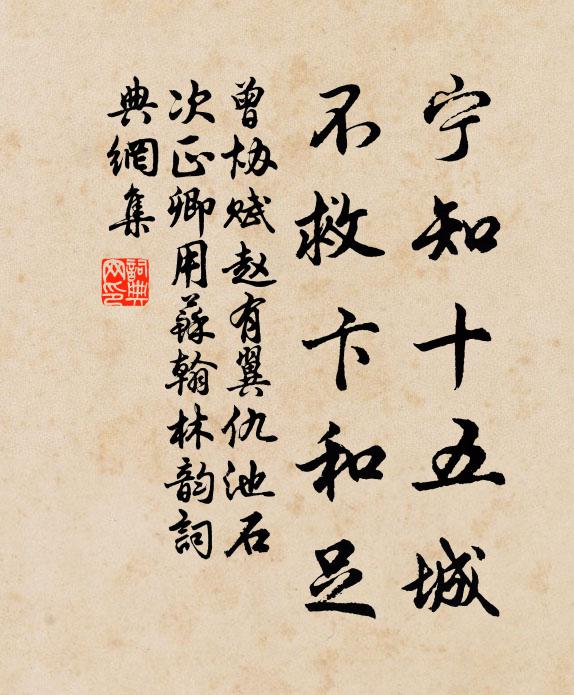 宁知十五城
不救卞和足
曾协赋赵有翼仇池石
次正卿用蘇翰林韵詞
典網集
詞典
网印